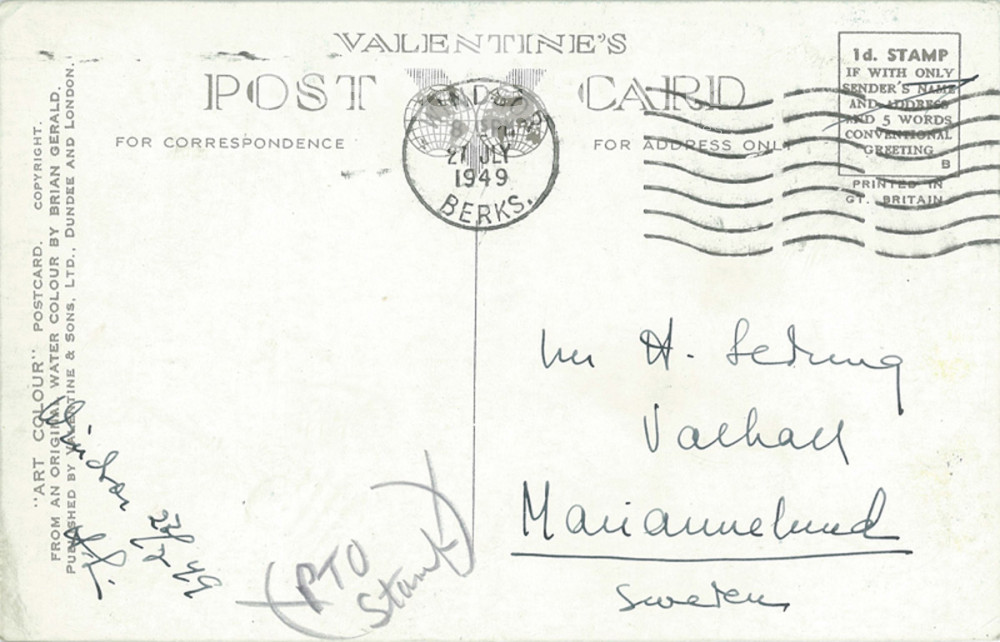 VALENTINE'S
POST CARD
FOR CORRESPONDENCE
FOR ADDRESS ONLY
1d. STAMP
IF WITH ONLY
SENDER'S NAME
AND ADDRESS
AND 5 WORDS
CONVENTIONAL
GREETING
B
PRINTED IN
GT. BRITAIN
27 JLY
1949
BERKS.
"ART COLOUR" POSTCARD. COPYRIGHT.
FROM AN ORIGINAL WATER COLOUR BY BRIAN GERALD.
PUBLISHED BY VALENTINE & SONS, LTD., DUNDEE AND LONDON.
Windsor 27/7 49
(PTO
Stamp)
H.
Valhall
Mariannelund
Sweden